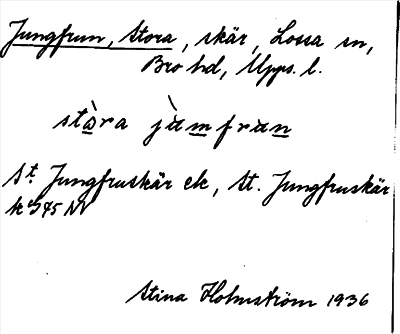 Jungfrun, Stora, skär, Lossa sn,
Bro hd, Upps. l.
stɷ̀ra jɯ̀mfrɯn
St. Jungfruskär ek, St. Jungfruskär
k 345 NV
Stina Holmström 1936